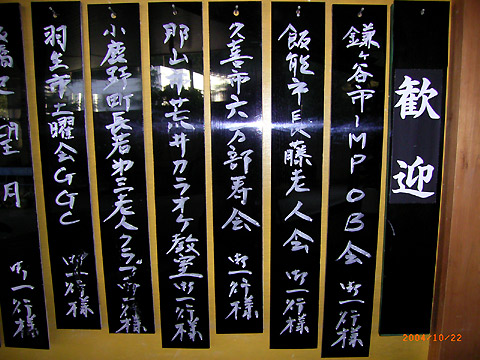 歓迎
鎌ヶ谷市IMPOB会 御一行様
飯能市長藤老人会 御一行様
久喜市六万部寿会 御一行様
郡山市荒井カラオケ教室 御一行様
小鹿野町長若第三老人クラブ 御一行様
羽生市土曜会GGC 御一行様
望月 御一行様
2004/10/22